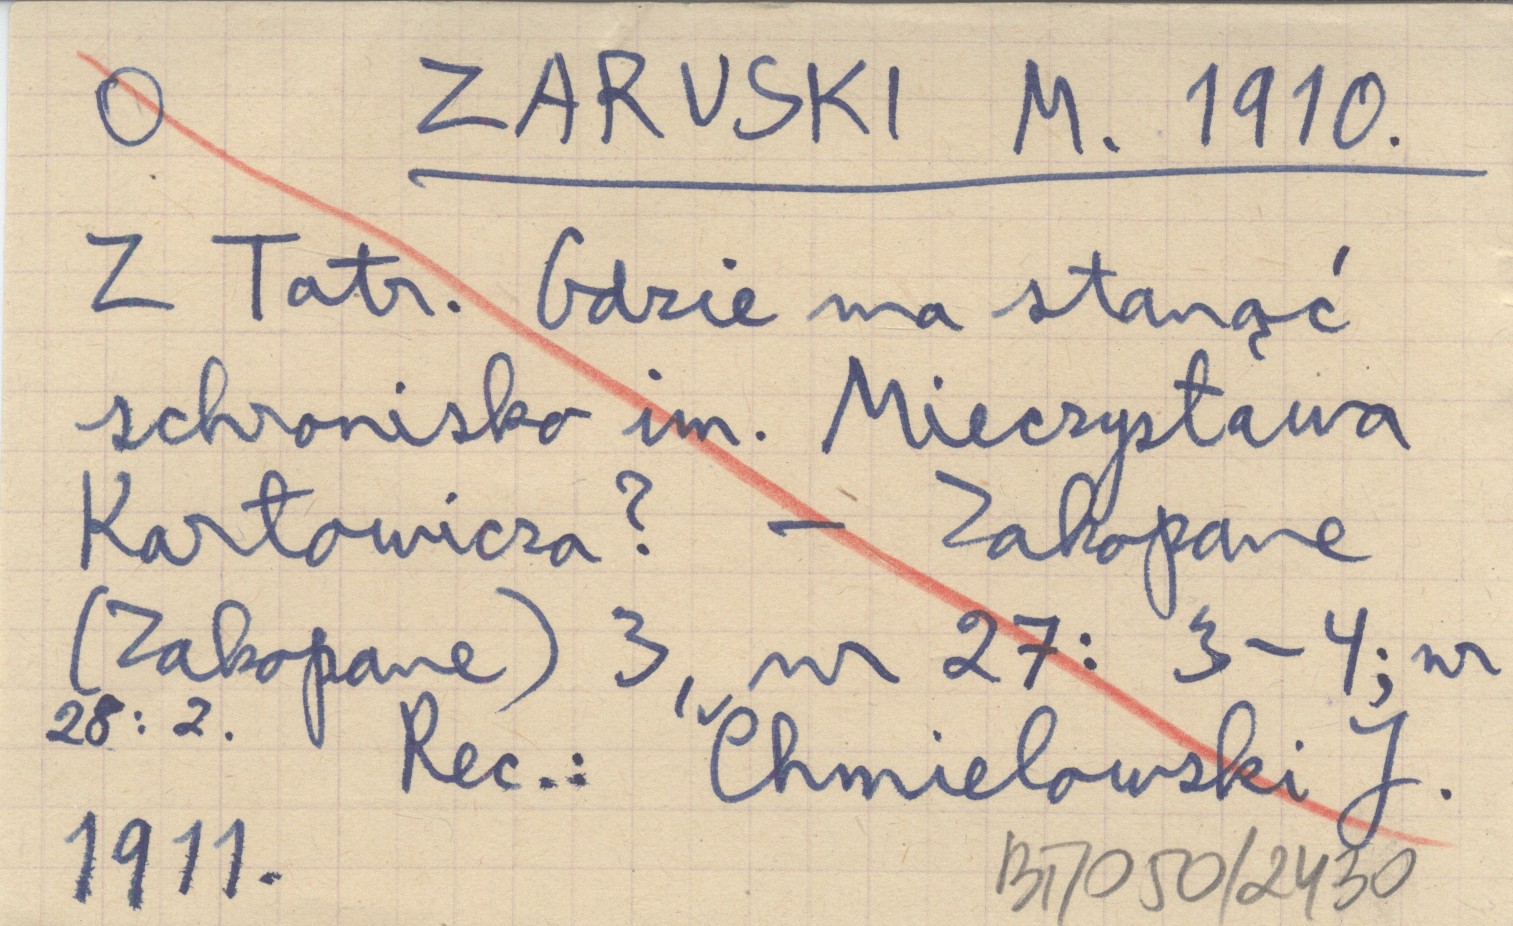 O ZARUSKI M. 1910.
Z Tatr. Gdzie ma stanąć
schronisko im. Mieczysława
Karłowicza? — Zakopane
(Zakopane) 3, nr 27: 3-4; nr
28: 2. Rec.: Chmielowski J.
1911.
BT/050/2430